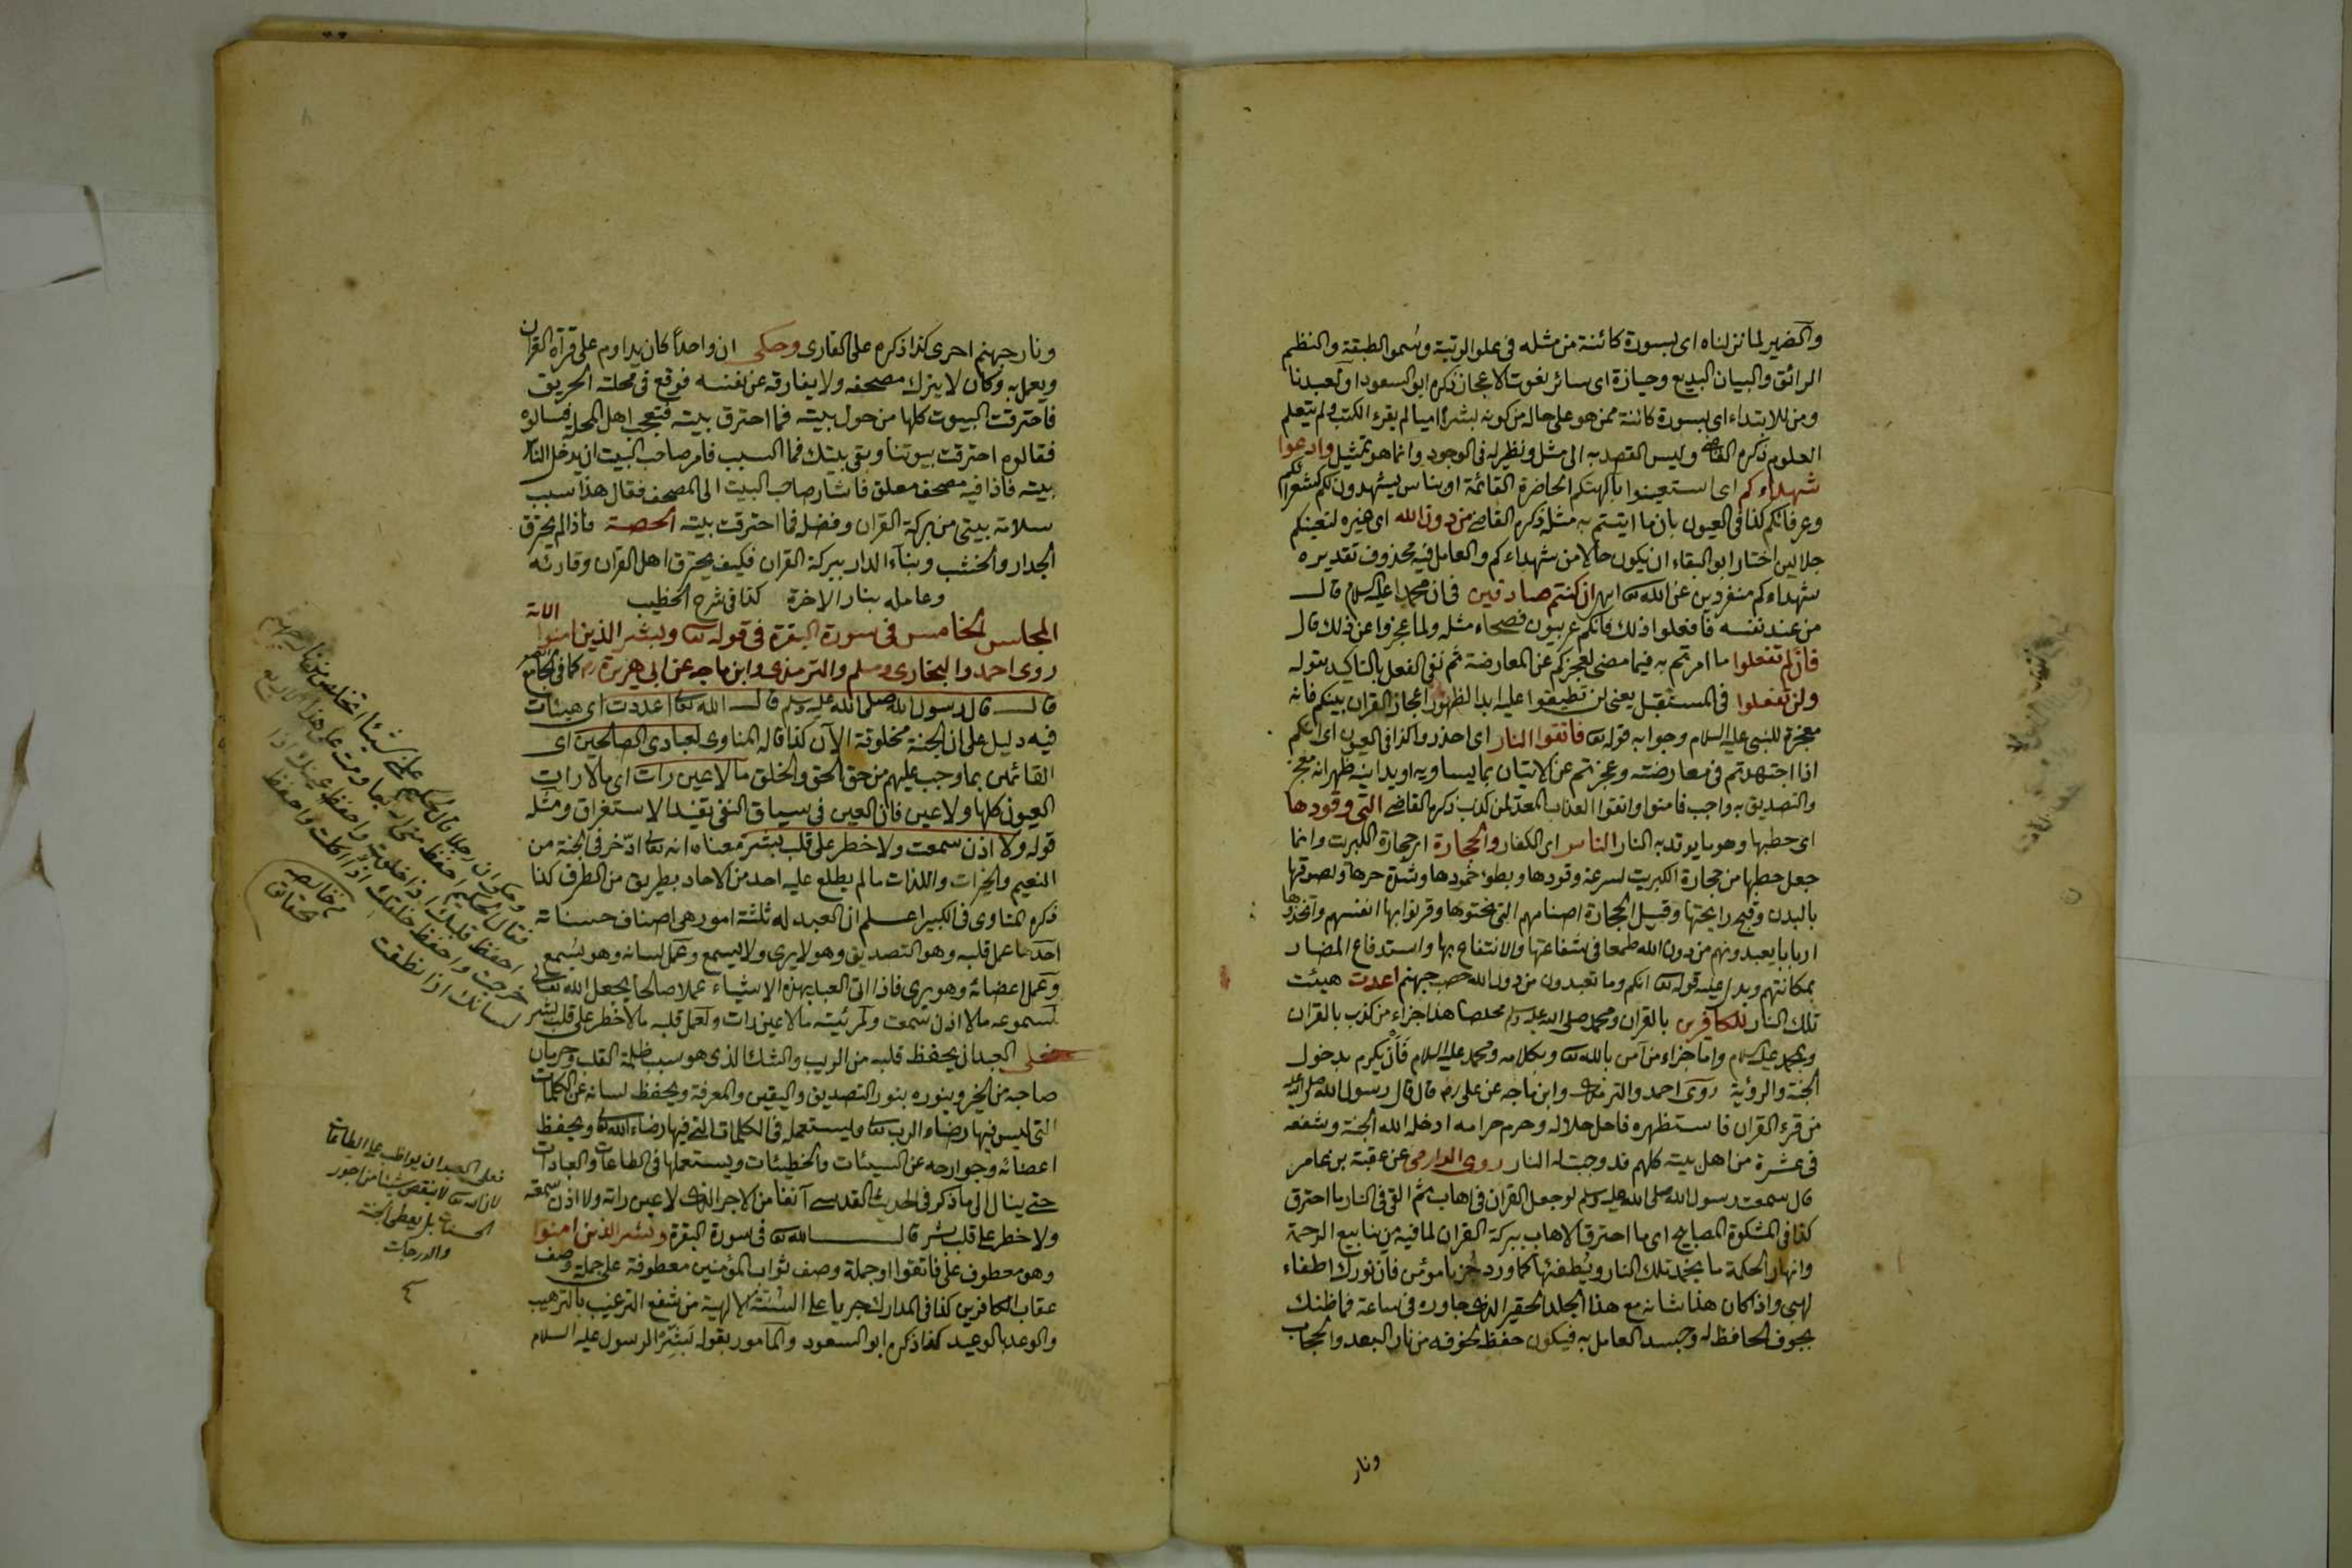 والضمير لما نزلناه اى بسورة كائنة من مثله فى علو الرتبة وسمو الطبقة والنظم
الرائق والبيان البديع وحيازة اى سائر نعوت الاعجاز ذكره ابو السعود او لعبدنا
ومن للابتداء اى بسورة كائنة ممن هو على حاله من كونه بشرا اميا لم يقرء الكتب ولم يتعلم
العلوم ذكره القاضى وليس القصد به الى مثل ونظير له فى الوجود وانما هو تمثيل وادعوا
شهداءكم اى استعينوا بآلهتكم الحاضرة القائمة او بناس يشهدون لكم كشعرائكم
وعرفائكم كذا فى العيون بان ما اتيتم به مثله ذكره القاضى من دون الله اى غيره لتعينكم
جلالين اختار ابو البقاء ان يكون حالا من شهداءكم والعامل فيه محذوف تقديره
شهداءكم منفردين عن الله تعالى ان كنتم صادقين فى ان محمدا عليه السلام قال
من عند نفسه فافعلوا ذلك فانكم عربيون فصحاء مثله ولما عجزوا عن ذلك قال
فان لم تفعلوا ما امرتم به فيما مضى لعجزكم عن المعارضة ثم نفى الفعل بالتاكيد بقوله
ولن تفعلوا فى المستقبل يعنى لن تطيقوا عليه ابدا لظهور اعجاز القران بينكم فانه
معجزة للنبى عليه السلام وجوابه قوله تعالى فاتقوا النار اى احذروا كذا فى العيون اى انكم
اذا اجتهدتم فى معارضته وعجزتم عن الاتيان بما يساويه او يدانيه ظهر انه معجز
والتصديق به واجب فامنوا واتقوا العذاب المعد لمن كذب ذكره القاضى التى وقودها
اى حطبها وهو ما يوقد به النار الناس اى الكفار والحجارة اى حجارة الكبريت وانما
جعل حطبها من حجارة الكبريت لسرعة وقودها وبطوء خمودها وشدة حرها ولصوقها
بالبدن وقبح رايحتها وقيل الحجارة اصنامهم التى نحتوها وقرنوا بها انفسهم واتخذوها
اربابا يعبدونهم من دون الله طمعا فى شفاعتها والانتفاع بها واستدفاع المضار
بمكانتهم ويدل عليه قوله تعالى انكم وما تعبدون من دون الله حصب جهنم اعدت هيئت
تلك النار للكافرين بالقران ومحمد صلى الله عليه وسلم ملخصا هذا جزاء من كذب بالقران
وبمحمد عليه السلام واما جزاء من آمن بالله تعالى وبكلامه ومحمد عليه السلام فان يكرم بدخول
الجنة والرؤية روى احمد والترمذى وابن ماجه عن على رضى قال قال رسول الله صلى الله عليه
من قرء القران فاستظهره فاحل حلاله وحرم حرامه ادخله الله الجنة وشفعه
فى عشرة من اهل بيته كلهم قد وجبت له النار روى الدارمى عن عقبة بن عامر
قال سمعت رسول الله صلى الله عليه وسلم لو جعل القران فى اهاب ثم القى فى النار ما احترق
كذا فى المشكوة المصابيح اى ما احترق الاهاب ببركة القران لما فيه من ينابيع الرحمة
وانهار الحكمة ما يخمد تلك النار ويطفئها كما ورد جز يا مؤمن فان نورك اطفاء
لهبى واذا كان هذا شانه مع هذا الجلد الحقير الذى جاوره فى ساعة فما ظنك
بجوف الحافظ له وجسد العامل به فيكون حفظه لخوفه من نار البعد والحجاب
ونار
ونار جهنم احرى كذا ذكره على القارى وحكى ان واحدا كان يداوم على قرآة القران
ويعمل به وكان لا يترك مصحفه ولا يفارقه عن نفسه فوقع فى محلته الحريق
فاحترقت البيوت كلها من حول بيته فما احترق بيته فتعجب اهل المحلة فسالوه
فقالوه احترقت بيوتنا وبقى بيتك فما السبب فامر صاحب البيت ان يدخل الناس
بيته فاذا فيه مصحف معلق فاشار صاحب البيت الى المصحف فقال هذا سبب
سلامة بيتى من بركة القران وفضله فما احترقت بيته الحصة فاذا لم يحترق
الجدار والخشب وبناء الدار ببركة القران فكيف يحترق اهل القران وقارئه
وعامله بنار الاخرة كذا فى شرح الخطيب
المجلس الخامس فى سورة البقرة فى قوله تعالى وبشر الذين امنوا الاية
روى احمد والبخارى ومسلم والترمذى وابن ماجه عن ابى هريرة رضى كما فى الجامع الصغير
قال قال رسول الله صلى الله عليه وسلم قال الله تعالى اعددت اى هيئات
فيه دليل على ان الجنة مخلوقة الآن كذا قاله المناوى لعبادى الصالحين اى
القائمين بما وجب عليهم من حق الحق والخلق ما لا عين رات اى ما لا رات
العيون كلها ولا عين فان العين فى سياق النفى تفيد الاستغراق ومثله
قوله ولا اذن سمعت ولا خطر على قلب بشر معناه انه تعالى ادخر فى الجنة من
النعيم والخيرات واللذات ما لم يطلع عليه احد من الاحاد بطريق من الطرف كذا
ذكره المناوى فى الكبير اعلم ان العبد له ثلثة امور هى اصناف حسناته
احدها عمل قلبه وهو التصديق وهو لا يرى ولا يسمع وعمل لسانه وهو يسمع
وعمل اعضائه وهو يرى فاذا اتى العبد بهذه الاشياء عملا صالحا يجعل الله تعالى
لسموعه ما لا اذن سمعت ولمرئيته ما لا عين رات ولعمل قلبه ما لا خطر على قلب بشر
فعلى العبد ان يحفظ قلبه من الريب والشك الذى هو سبب ظلمة القلب وحرمان
صاحبه من الخير وينوره بنور التصديق واليقين والمعرفة ويحفظ لسانه عن الكلمات
التى ليس فيها رضاء الرب تعالى وليستعمله فى الكلمات التى فيها رضاء الله تعالى ويحفظ
اعضائه وجوارحه عن السيئات والخطيئات ويستعملها فى الطاعات والعبادات
حتى ينال الى ما ذكر فى الحديث القدسى آنفا من الاجر الذى لا عين راته ولا اذن سمعته
ولا خطر على قلب بشر قال الله تعالى فى سورة البقرة وبشر الذين امنوا
وهو معطوف على فاتقوا او جملة وصف ثواب المؤمنين معطوفة على جملة وصف
عقاب الكافرين كذا فى المدارك جريا على السنة الالهية من شفع الترغيب بالترهيب
والوعد بالوعيد كذا ذكره ابو السعود والمأمور بقوله بشر الرسول عليه السلام
وحكى ان رجلا قال لحكيم علمنى شيئا اتخلص من نار جهنم
فقال الحكيم احفظ من اربعا ومت على هذا الاربع
احفظ قلبك اذا خلوت واحفظ عينك اذا
خرجت واحفظ حلقك اذا اكلت واحفظ
لسانك اذا نطقت
من خالصة
حقائق
فعلى العبد ان يواظب على الطاعات
لان الله تعالى لا ينقص شيئا من اجور
الحسنات بل يعطى الجنة
والدرجات